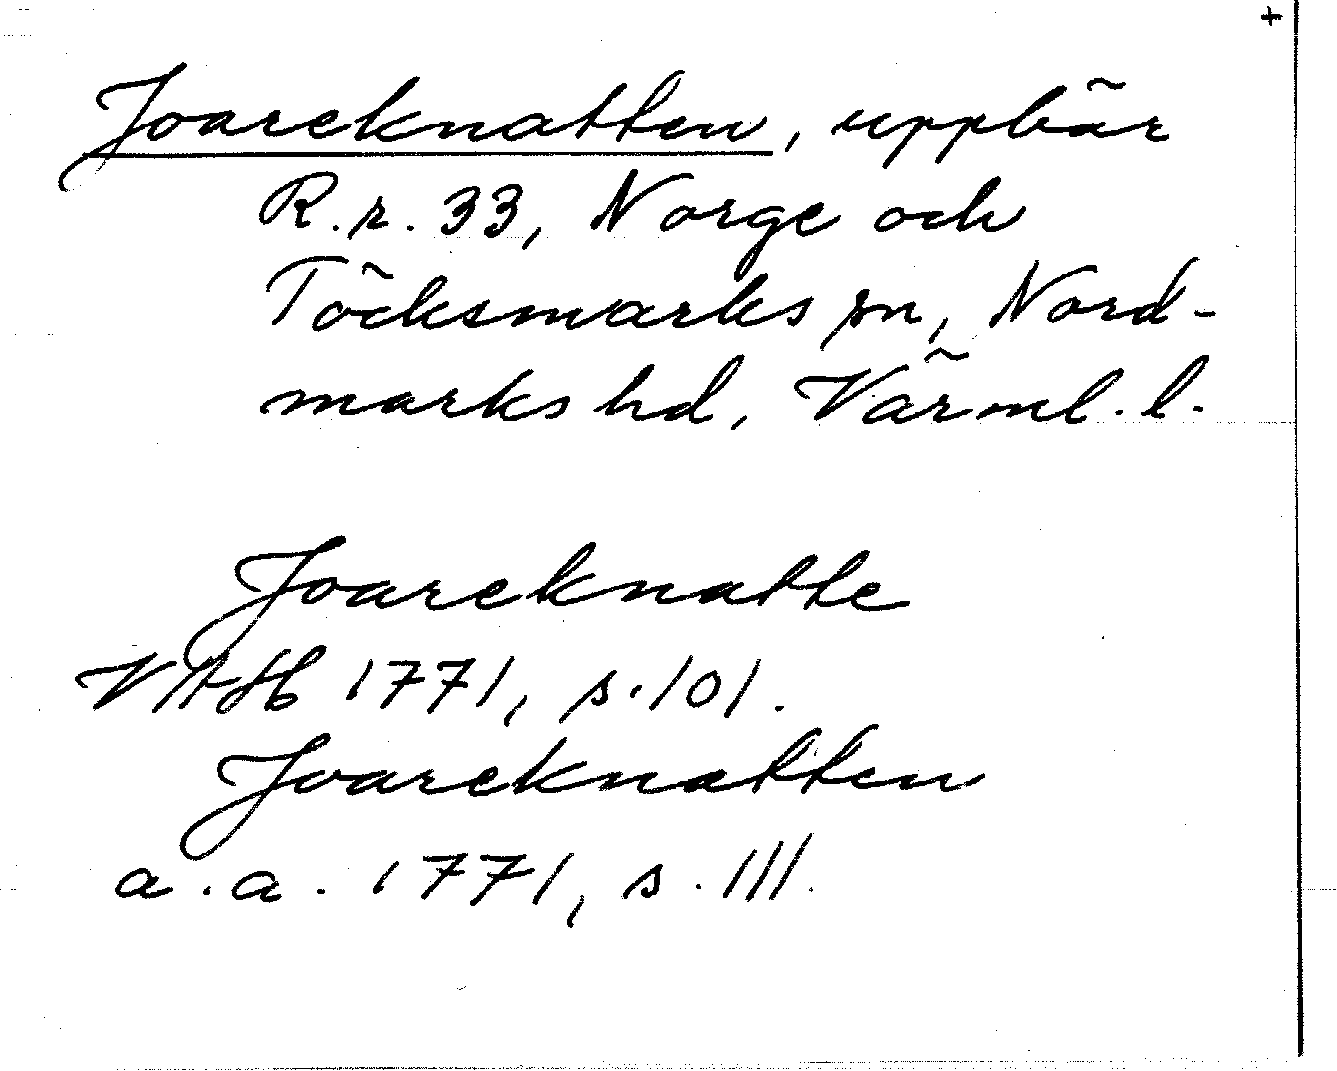 +
Joareknatten, uppbär
R.r. 33, Norge och
Töcksmarks sn, Nord-
marks hd, Värml. l.
Joareknatte
VAH 1771, s. 101.
Joareknatten
a.a. 1771, s. 111.